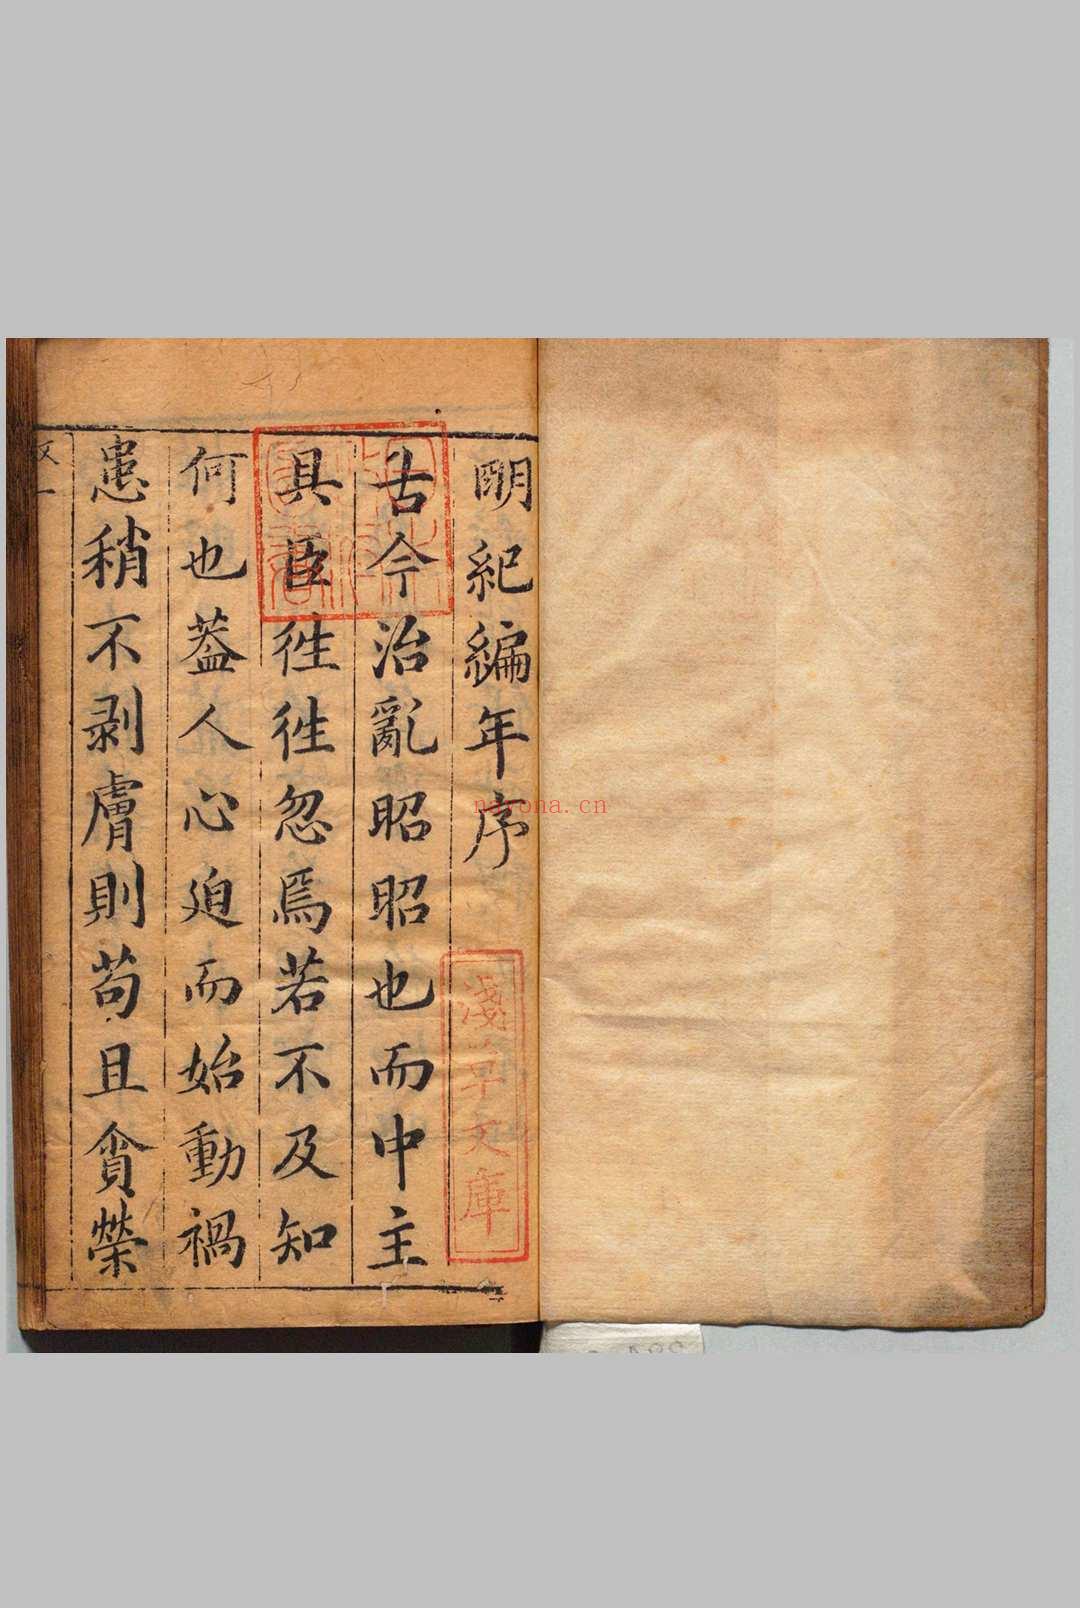 明紀編年序
古今治亂昭昭也而中主
具臣徃徃忽焉若不及知
何也葢人心迫而始動禍
患稍不剥膚則苟且貪榮
淺草文庫
nayona.cn